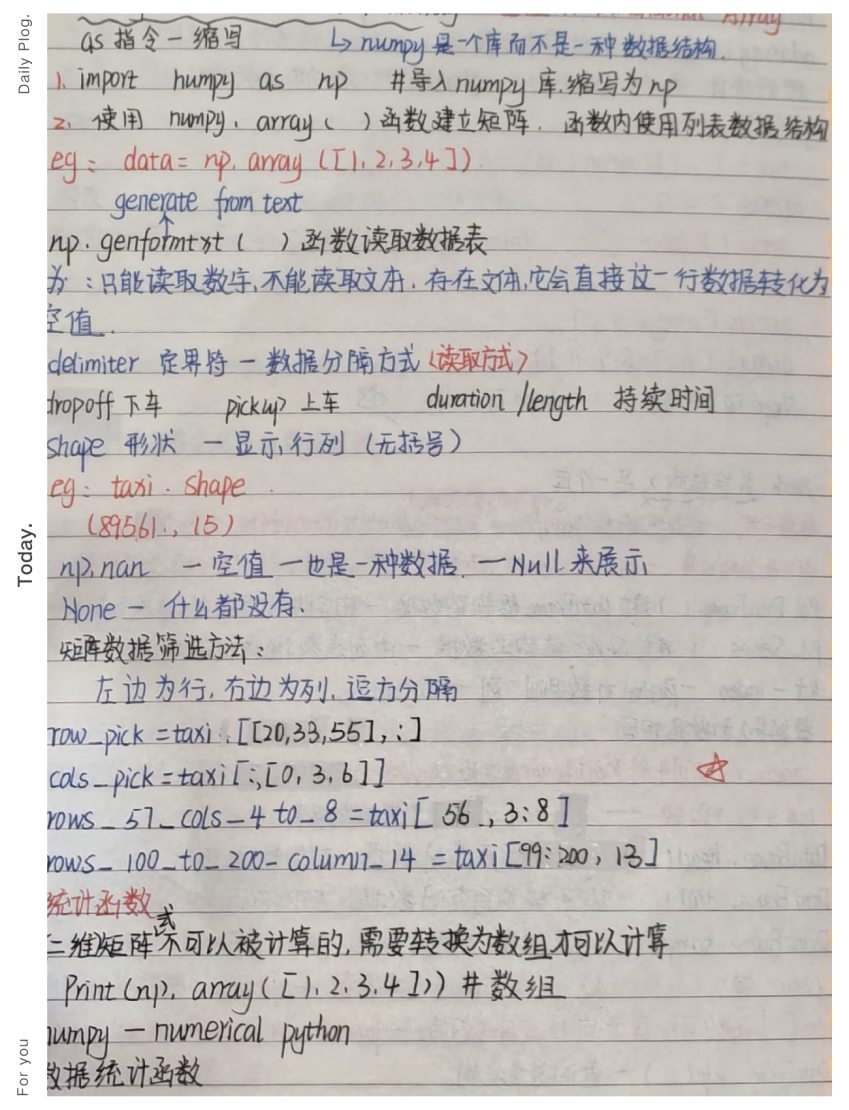 Daily Plog.
Today.
For you
Array
as 指令一缩写 ↳ numpy是一个库而不是一种数据结构.
1. import humpy as np #导入numpy库.缩写为np
2. 使用 numpy. array ( ) 函数建立矩阵. 函数内使用列表数据结构
eg: data= np. array ([1.2.3.4])
generate from text
np. genformtxt ( ) 函数读取数据表
为:只能读取数字,不能读取文本. 存在文体,它会直接这一行数据转化为
空值.
delimiter 定界符 — 数据分隔方式 (读取方式)
dropoff 下车 pickup 上车 duration /length 持续时间
shape 形状 — 显示行列 (无括号)
eg: taxi. shape
(89561., 15)
np.nan — 空值 一也是一种数据. — Null 来展示
None — 什么都没有.
矩阵数据筛选方法:
左边为行,右边为列,逗方分隔
row_pick =taxi.[[20,33,55],:]
cols_pick=taxi[:,[0, 3, 6]]
rows_57_cols_4 to_8 =taxi[ 56., 3:8]
rows_100_to_200_column_14 = taxi[99:200, 13]
统计函数
二维矩阵式不可以被计算的,需要转换为数组才可以计算
Print (np. array([1.2.3.4])) #数组
numpy — numerical python
数据统计函数